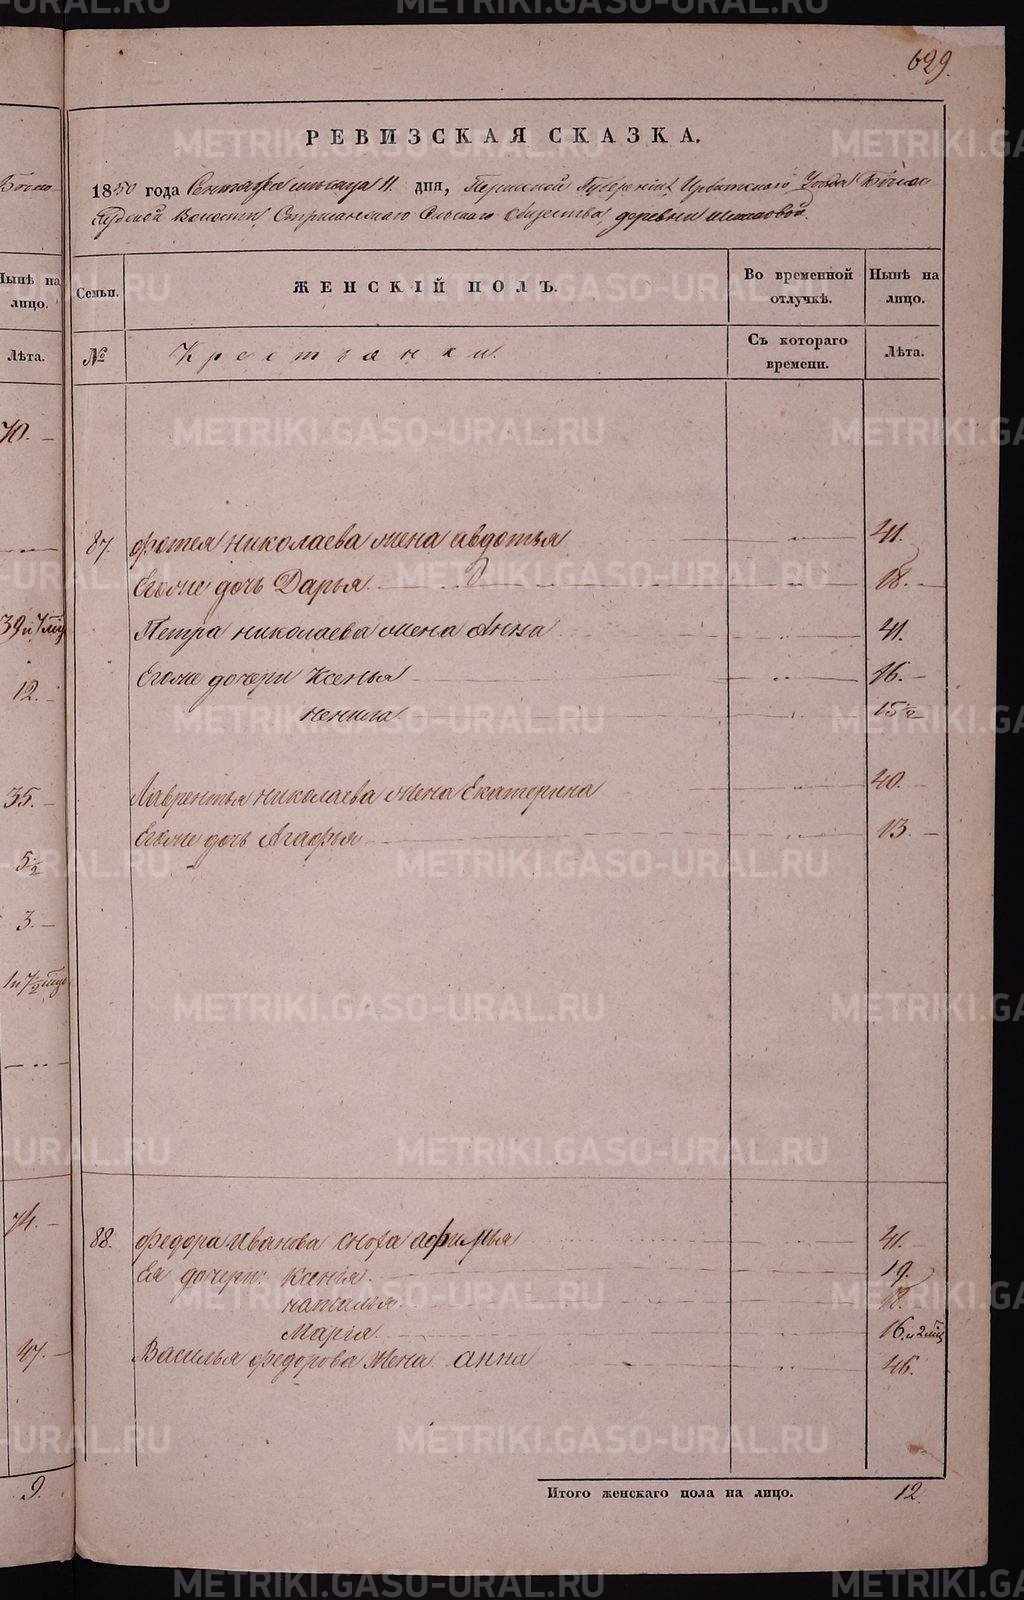 629.
РЕВИЗСКАЯ СКАЗКА.
1850 года Сентября месяца 11 дня, Пермской Губернии, Ирбитского Уезда
Волости, Стриганскаго Сельскаго общества, деревни
Нынѣ на лицо.
Семьи.
ЖЕНСКІЙ ПОЛЪ.
Во временной отлучкѣ.
Нынѣ на лицо.
Лѣта.
№
Крестьянки.
Съ котораго времени.
Лѣта.
70.
87. фотея николаева жена авдотья 41.
Егоже дочь Дарья 18.
39 и 7 мц
Петра николаева жена Анна 41.
12.
Егоже дочери Ксенья 16.
ненила. 15 1/2
35.
Лаврентья николаева жена Екатерина 40.
Егоже дочь Агафья 13.
5 1/2
3.
1 и 7 1/2 мцв
74.
88. федора Иванова сноха афимья 41.
Ея дочери: Ксенія 19.
наталья 18.
Марія. 16. и 2 мц
47.
Василья федорова жена анна 46.
9.
Итого женскаго пола на лицо. 12.
METRIKI.GASO-URAL.RU